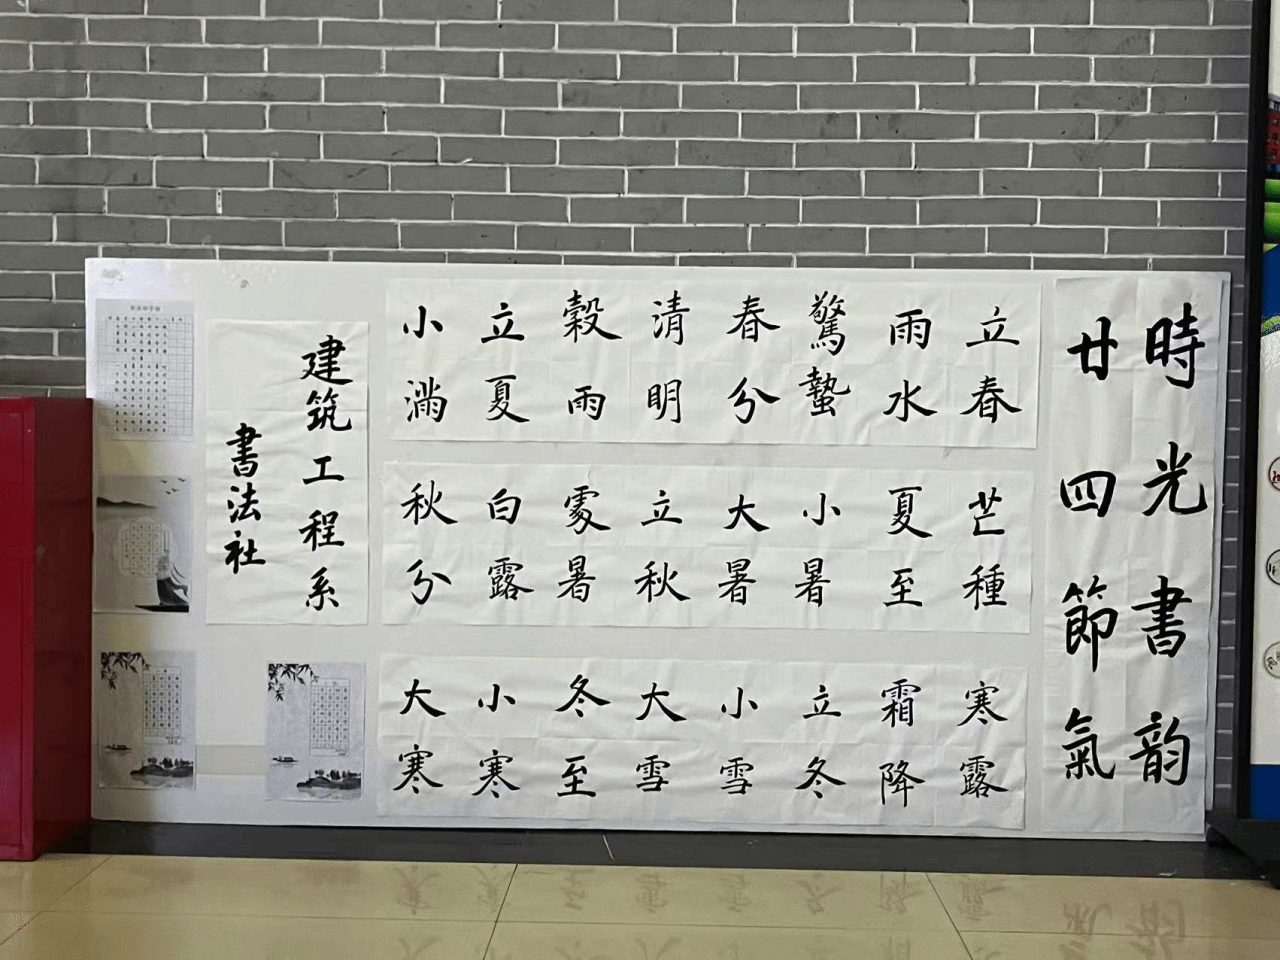 時光書韵
廿四節氣
立春
雨水
驚蟄
春分
清明
穀雨
立夏
小滿
芒種
夏至
小暑
大暑
立秋
處暑
白露
秋分
寒露
霜降
立冬
小雪
大雪
冬至
小寒
大寒
建筑工程系
書法社